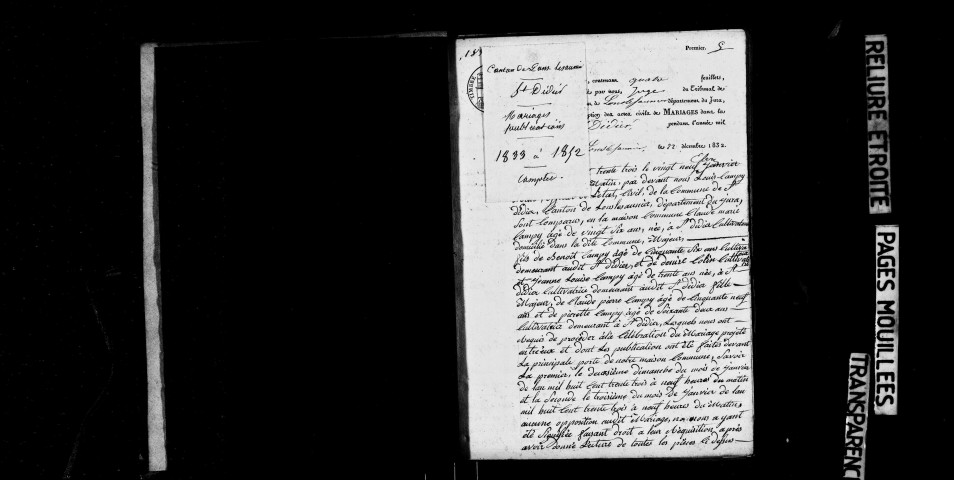 Canton de Lons lesaunier
St Didier
Mariages
publications
1833 à 1852
Comptée.
TIMBRE
Permier. 5
, contenant quatre feuillets,
par nous, Juge du Tribunal de
de Lonslesaunier département du Jura,
ption des actes civils de MARIAGES dans la
Didier, pendant l'année mil
Lonslesaunier, le 22 décembre 1832.
trente trois le vingt neuf Janvier
Matin, par devant nous Louis Campy
de l'état, Civil, de la Commune de St
didier, Canton de Lonslesaunier, département du Jura,
Sont Comparus, en la maison Commune Claude marie
Campy âgé de vingt Six ans, née, à St didier Cultivateur
domicilié dans la dite Commune, Majeur,
fils de Benoit Campy âgé de Cinquante Six ans Cultivateur
demeurant audit St didier, et de denise Colin Cultivatrice
et Jeanne Louise Campy âgé de trente ans née, à St
didier Cultivatrice demeurant audit St didier fille
Majeur, de Claude pierre Campy âgé de Cinquante neuf
ans et de pierette Campy âgé de Soixante deux ans
Cultivatrice demeurant à St didier, Lesquels nous ont
Requis de procéder à la Célébration du Mariage projeté
entreux et dont Les publication ont été faites devant
La principale porte de notre maison Commune, Savoir
La premier, le deuxième dimanche du mois de Janvier
de lan mil huit Cent trente trois à neuf heures du matin
et la Seconde le troisième du mois de Janvier de lan
mil huit Cent trente trois à neuf heures du Matin,
aucune opposition audit Mariage, ne nous a yant
été Signifiée faisant droit a leur Réquisition, après
avoir donné Lecture de toutes les pièces Ci dessus
RELIURE ETROITE
PAGES MOUILLEES
TRANSPARENC